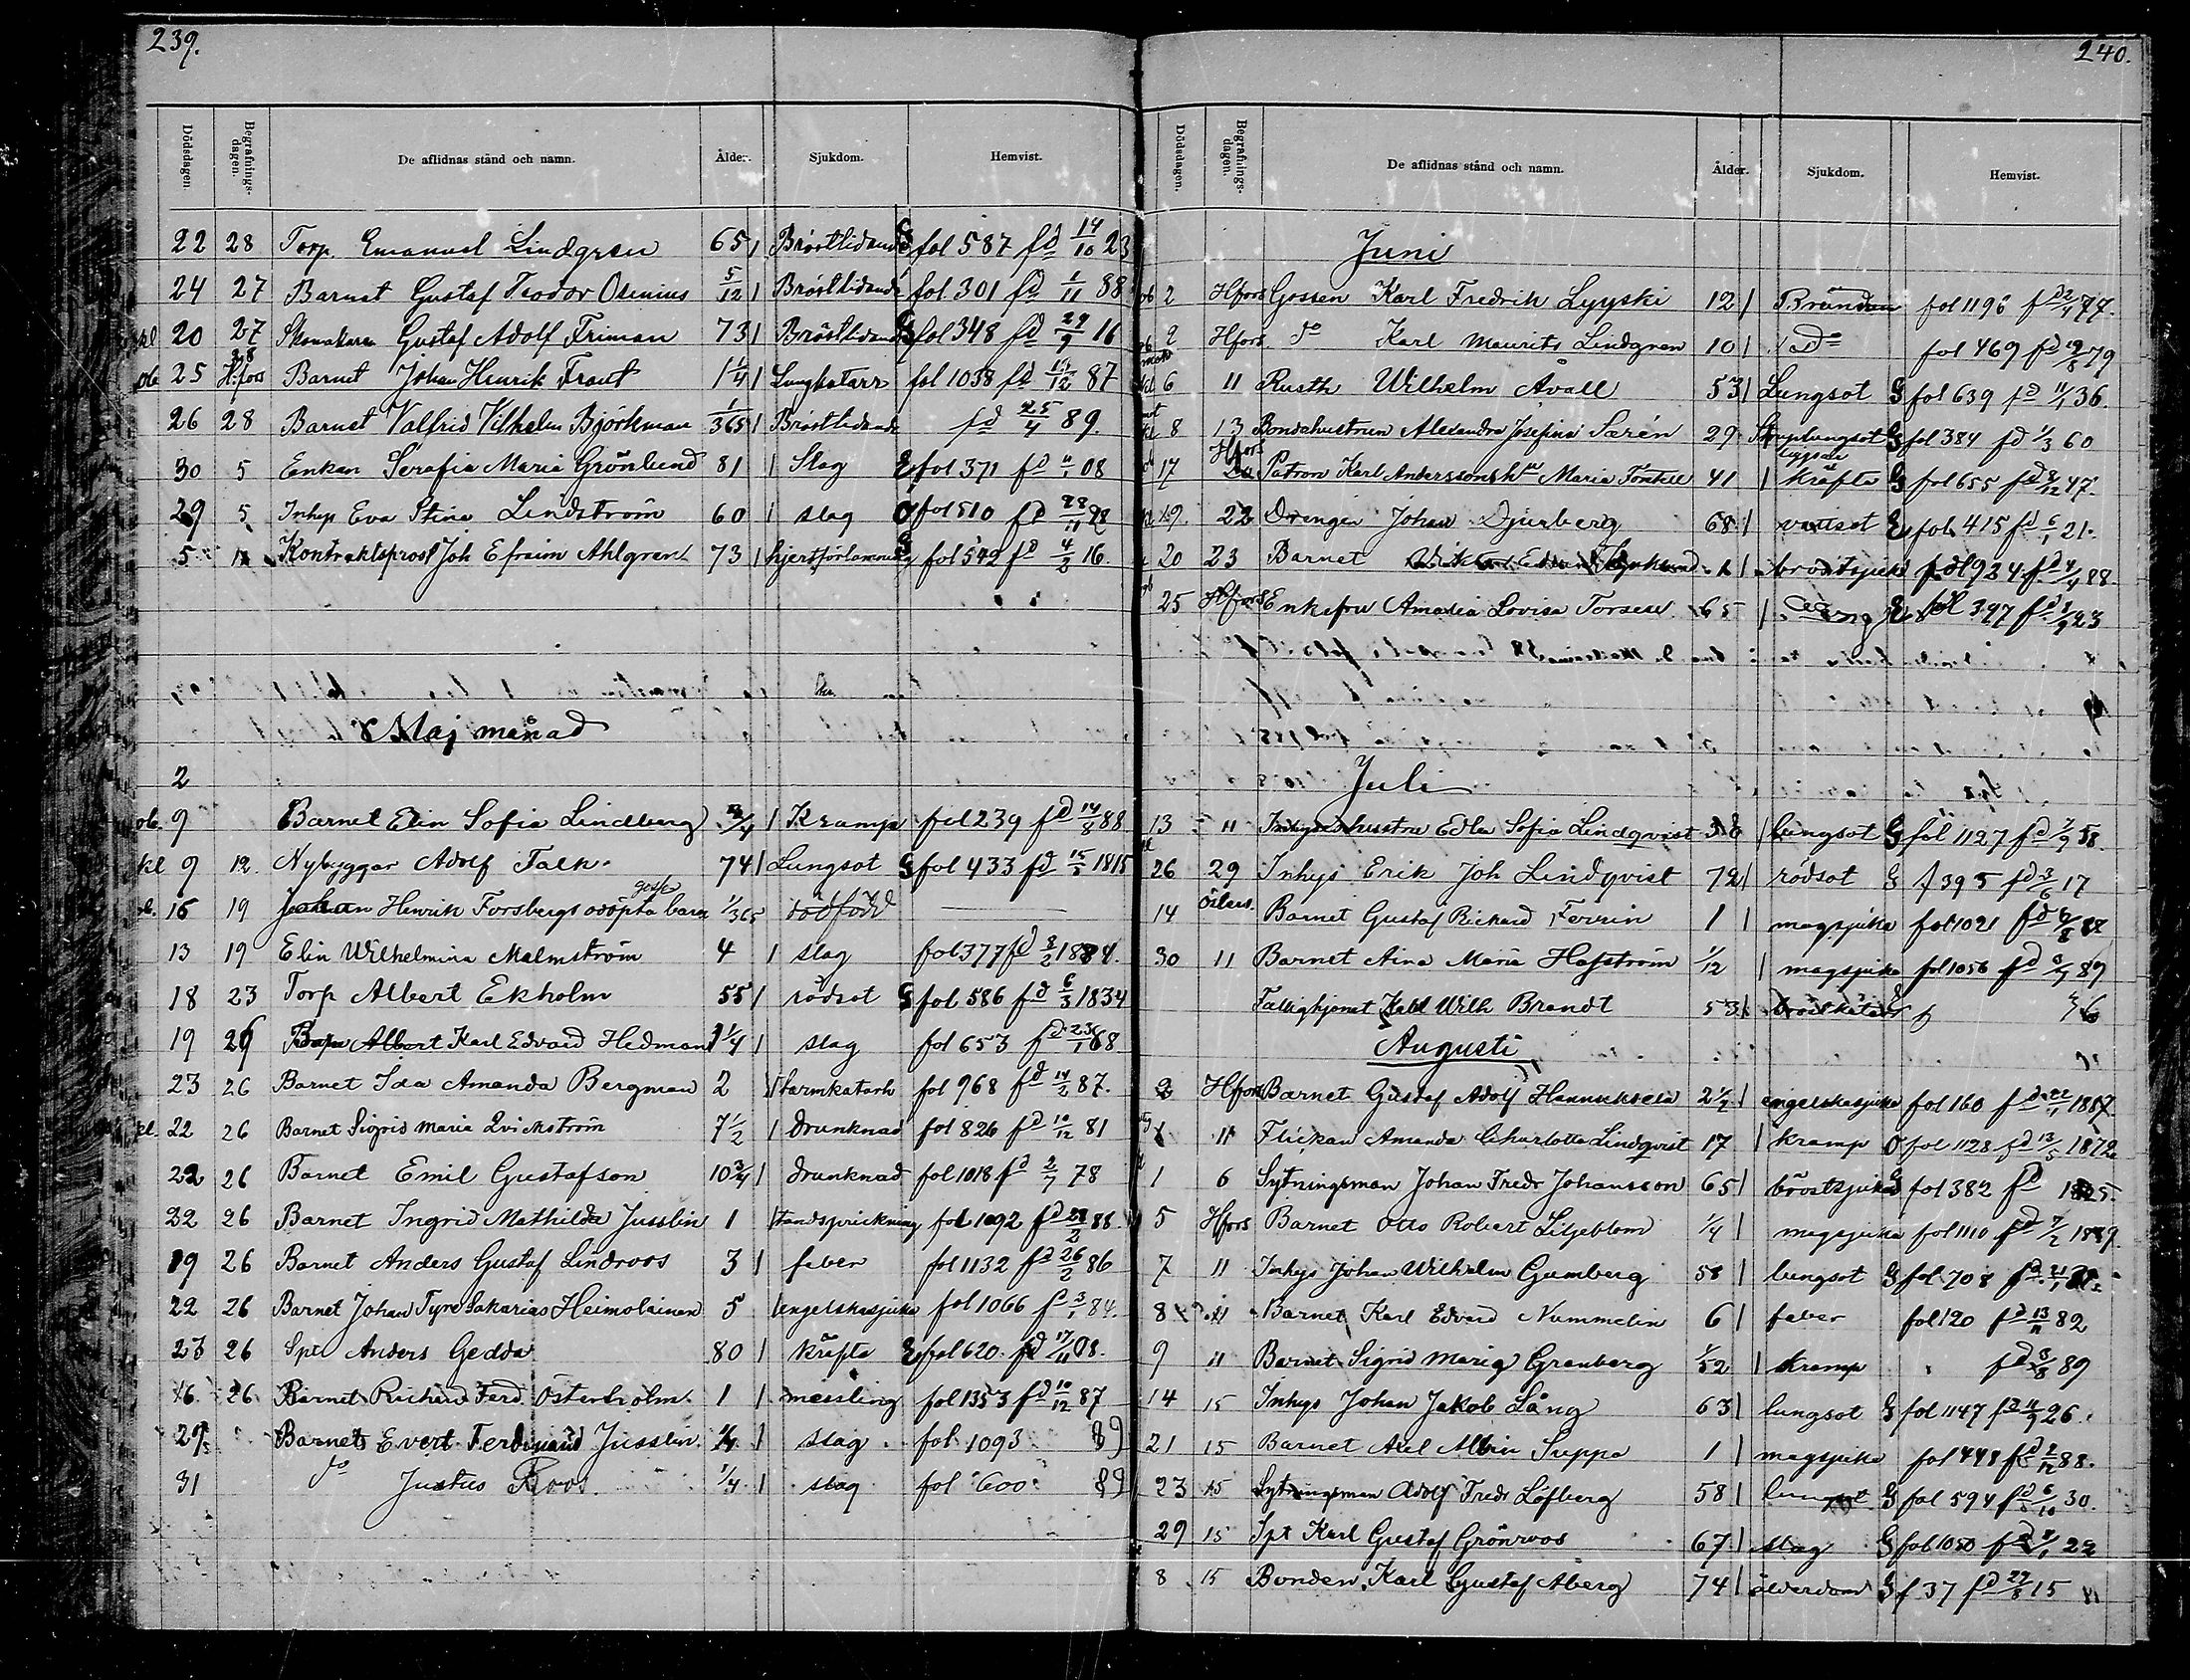 239.
Dödsdagen. Begrafnings-dagen. De aflidnas stånd och namn. Ålder. Sjukdom. Hemvist.
22 28 Torp. Emanuel Lindgren 65 Bröstlidande G fol 587 fd 14/10 23
24 27 Barnet Gustaf Teodor Osenius 5/12 Bröstlidande fol 301 fd 1/11 88
kl 20 27 Skomakare Gustaf Adolf Friman 73 Bröstlidande G fol 348 fd 29/9 16
ob 25 28 Hfors Barnet Johan Henrik Frant 1 1/4 Lungkatarr fol 1038 fd 87
26 28 Barnet Valfrid Vilhelm Björkman 1/365 Bröstlidande fd 25/4 89.
30 5 Enkan Serafia Maria Grönlund 81 Slag E fol 371 fd 08
29 5 Inhys Eva Stina Lindström 60 slag O fol 510 fd 28/11 28
5 Kontraktsprost Joh Efraim Ahlgren 73 hjertförlamning G fol 542 fd 4/2 16.
Maj månad
2
ob. 9 Barnet Elin Sofia Lindberg 3/4 Kramp fol 239 fd 14/8 88
kl 9 12. Nybyggar Adolf Falk 74 Lungsot G fol 433 fd 15/5 1815
ob. 16 19 Johan Henrik Forsbergs odöpta gosse barn 1/365 dödfödd
13 19 Elin Wilhelmina Malmström 4 slag fol 377 fd 8/2 1884.
18 23 Torp Albert Ekholm 55 rödsot G fol 586 fd 6/3 1834
19 26 Torp Albert Karl Edvard Hedman 1 1/4 slag fol 653 fd 23/1 68
23 26 Barnet Ida Amanda Bergman 2 tarmkatarh fol 968 fd 14/2 87.
kl. 22 26 Barnet Sigrid Maria Qvickström 7 1/2 drunknad fol 826 fd 10/12 81
22 26 Barnet Emil Gustafson 10 3/4 drunknad fol 1018 fd 2/7 78
22 26 Barnet Ingrid Mathilda Jusslin 1 tandsprickning fol 1092 fd 28/2 88
19 26 Barnet Anders Gustaf Lindroos 3 feber fol 1132 fd 26/2 86
22 26 Barnet Johan Tyre Sakarias Heimolainen 5 engelskasjuka fol 1066 fd 3/1 84.
23 26 Spt Anders Gedda 80 kräfta E fol 620 fd 17/11 08.
16. 26 Barnet Richard Ferd. Österholm 1 messling fol 1353 fd 10/12 87
29 Barnet Evert Ferdinand Jusslin 1/4 slag fol 1093 89
31 do Justus Roos. 1/4 slag fol 600 89
240.
Dödsdagen. Begrafnings-dagen. De aflidnas stånd och namn. Ålder. Sjukdom. Hemvist.
Juni
ob 2 Hfors Gossen Karl Fredrik Lyyski 12 Brändan fol 1196 fd 77.
ob 2 Hfors do Karl Maurits Lindgren 10 do fol 469 fd 19/8 79
kl 6 11 Rusth Wilhelm Åvall 53 Lungsot G fol 639 fd 11/1 36.
kl 8 13 Bondehustrun Alexandra Josefina Sarén 29 lungsot G fol 384 fd 1/3 60
17 Hfors Patron Karl Anderssons hu Maria Fontell 41 kräfta G fol 655 fd 8/12 47.
19. 22 Drengen Johan Djurberg 68 vattsot E fol 415 fd 6/1 21.
20 23 Barnet 1 bröstsjuka fol 924 fd 4/4 88.
25 Hfors Enkefru Amalia Lovisa Torsell 65 fol 397 fd 8/9 23
Juli
13 11 Inhyseshustru Edla Sofia Lindqvist 36 lungsot G fol 1127 fd 7/9 58.
26 29 Inhys Erik Joh Lindqvist 72 rödsot G f 395 fd 3/6 17
14 Österb. Barnet Gustaf Rickard Ferrin 1 magsjuka fol 1021 fd 88
30 11 Barnet Aina Maria Hafström 1/12 magsjuka fol 1056 fd 89
Fattighjonet Karl Wilh Brandt 53 bröstkatarr f 36
Augusti
2 Hfors Barnet Gustaf Adolf Hannuksela 2 1/2 engelskasjuka fol 160 fd 22/1 1887.
1 11 Flickan Amanda Charlotta Lindqvist 17 kramp O fol 1128 fd 13/5 1872
1 6 Sytningsman Johan Fredr Johansson 65 bröstsjuka G fol 382 fd 1825.
5 Hfors Barnet Otto Robert Liljeblom 1/4 magsjuka fol 1110 fd 7/2 1889.
7 11 Inhys Johan Wilhelm Gumberg 58 lungsot G fol 708 fd 21/1
8 11 Barnet Karl Edvard Nummelin 6 feber fol 120 fd 13/11 82
9 11 Barnet Sigrid Maria Granberg 1/52 kramp fd 3/8 89
14 15 Inhys Johan Jakob Lång 63 lungsot G fol 1147 fd 11/9 26.
21 15 Barnet Axel Albin Suppa 1 magsjuka fol 448 fd 2/12 88.
23 15 Sytningsman Adolf Fredr Löfberg 58 lungsot G fol 594 fd 6/10 30.
29 15 Spt Karl Gustaf Grönroos 67 slag G fol 1050 fd 8/1 22
8 15 Bonden Karl Gustaf Åberg 74 ålderdom G f 37 fd 27/8 15